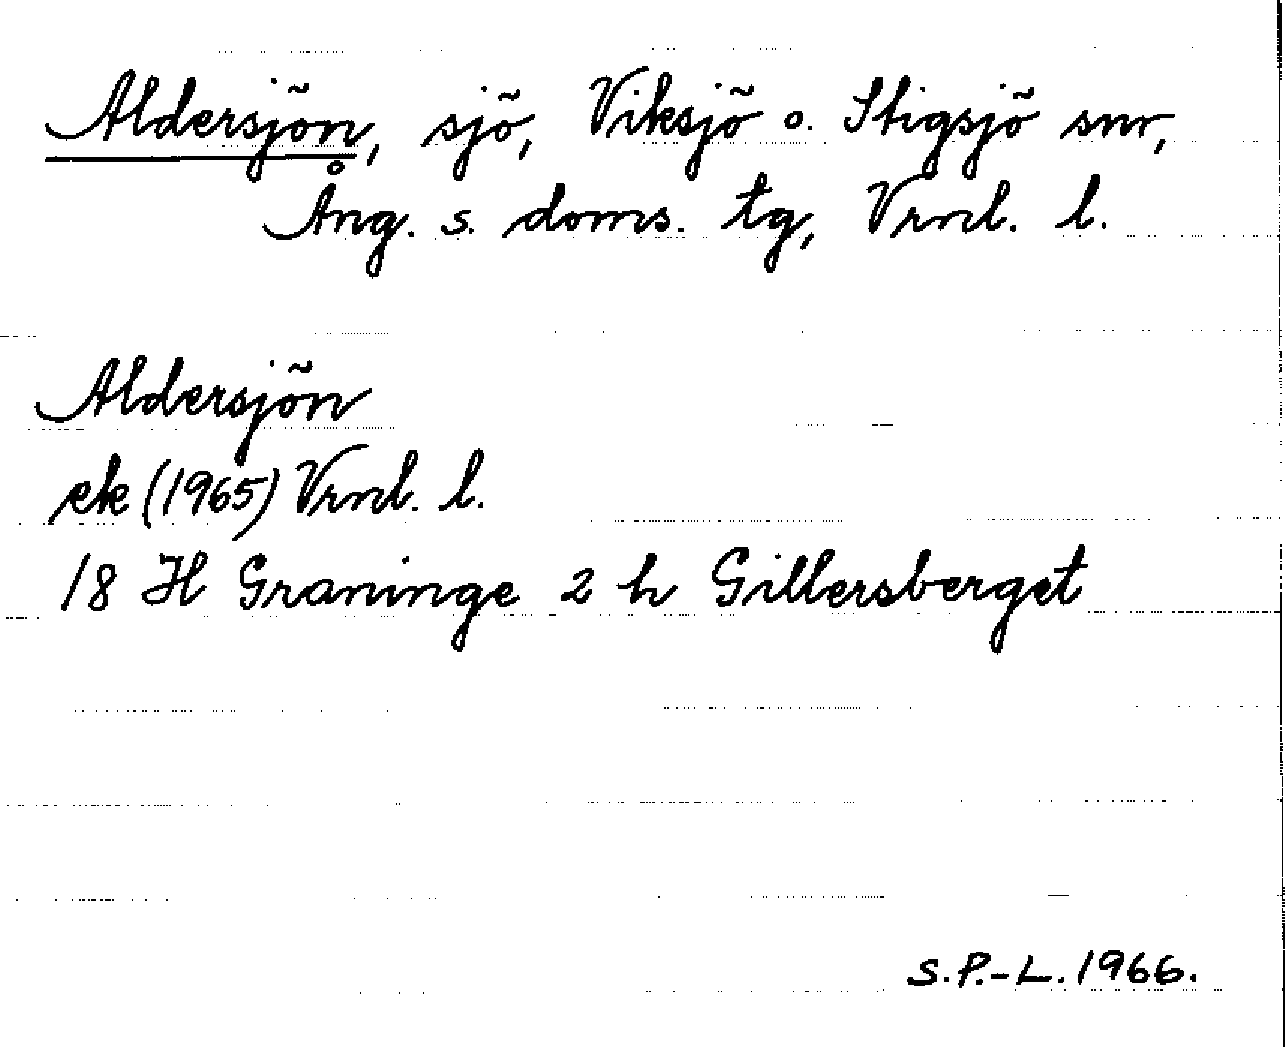 Aldersjön, sjö, Viksjö o. Stigsjö snr,
Ång. s. doms. tg, Vrnl. l.
Aldersjön
ek (1965) Vrnl. l.
18 H Graninge 2 h Gillersberget
S.P.-L. 1966.